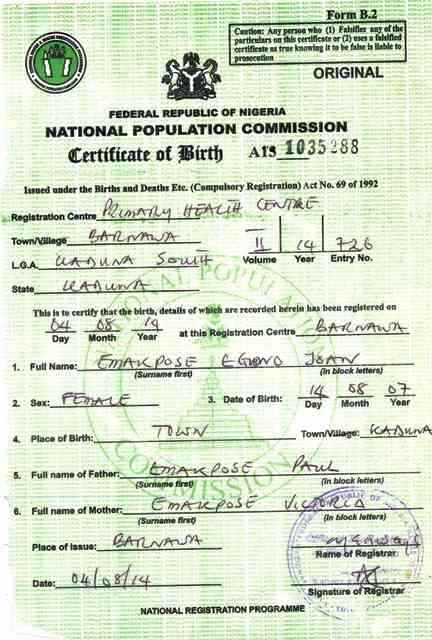 Form B.2
Caution: Any person who (1) Falsifies any of the
particulars on this certificate or (2) uses a falsified
certificate as true knowing it to be false is liable to
prosecution
ORIGINAL
FEDERAL REPUBLIC OF NIGERIA
NATIONAL POPULATION COMMISSION
Certificate of Birth A15 1035288
Issued under the Births and Deaths Etc. (Compulsory Registration) Act No. 69 of 1992
Registration Centre PRIMARY HEALTH CENTRE
Town/Village BARNAWA
II 14 726
L.G.A. KADUNA SOUTH Volume Year Entry No.
State KADUNA
This is to certify that the birth, details of which are recorded herein has been registered on
04 08 14 at this Registration Centre BARNAWA
Day Month Year
1. Full Name: EMAKPOSE EGONO JOAN
(Surname first) (In block letters)
2. Sex: FEMALE 3. Date of Birth: 14 08 07
Day Month Year
4. Place of Birth: TOWN Town/Village: KADUNA
5. Full name of Father: EMAKPOSE PAUL
(Surname first) (In block letters)
6. Full name of Mother: EMAKPOSE VICTORIA
(Surname first) (In block letters)
Place of Issue: BARNAWA
Name of Registrar
Date: 04/08/14
Signature of Registrar
NATIONAL REGISTRATION PROGRAMME
NATIONAL POPULATION
COMMISSION